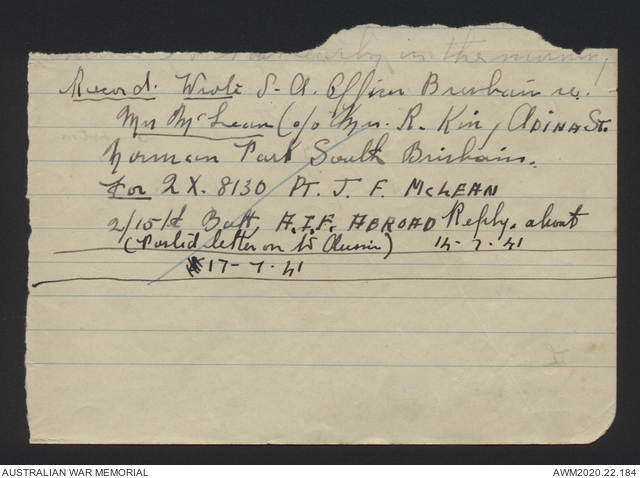 early in the morning
Record. Wrote S. A. Officer Brisbain re.
Mrs McLean (c/o Mrs. R. Kin, ADINA St.
Norman Park South Brisbain.
For 2 X. 8130 PT. J. F. McLEAN
2/15/st Batt A.I.F. ABROAD Reply. about
(Posted letter on to Aussie) 14-7-41
17-7-41
AUSTRALIAN WAR MEMORIAL
AWM2020.22.184